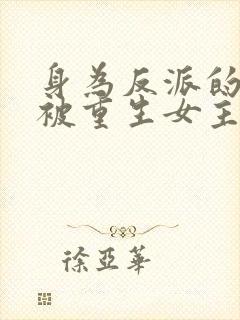 身為反派的
被重生女主
徐亞華